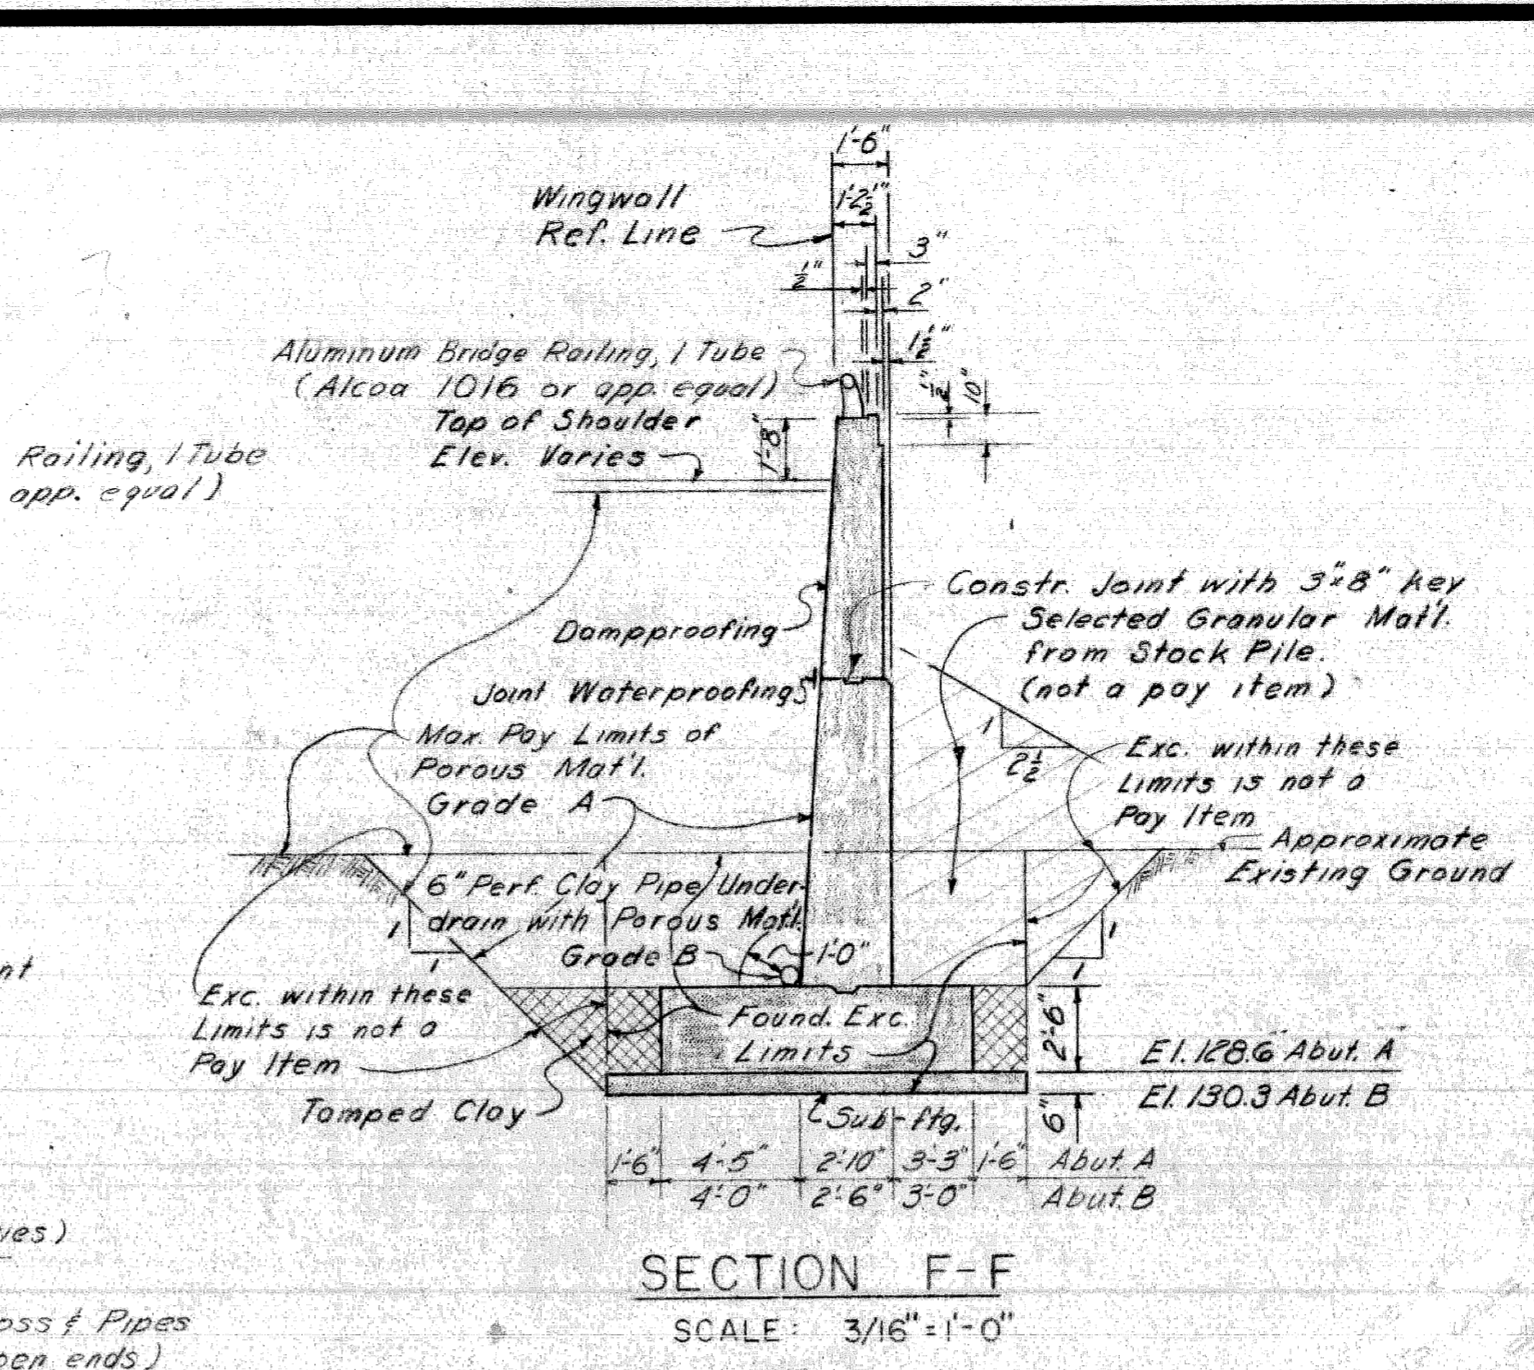 1'-6"
Wingwall
Ref. Line
1'-2½"
3"
½"
2"
1½"
Aluminum Bridge Railing, 1 Tube
(Alcoa 1016 or app. equal)
Top of Shoulder
Elev. Varies
1'-8"
½"
10"
Railing, 1 Tube
app. equal)
Constr. Joint with 3"x8" key
Selected Granular Mat'l.
from Stock Pile.
(not a pay item)
Dampproofing
Joint Waterproofing
Max. Pay Limits of
Porous Mat'l.
Grade A
1
2½
Exc. within these
Limits is not a
Pay Item
Approximate
Existing Ground
6" Perf. Clay Pipe Under-
drain with Porous Mat'l.
Grade B
1'-0"
1
1
1
1
nt
Exc. within these
Limits is not a
Pay Item
Found. Exc.
Limits
Tamped Clay
Sub-ftg.
2'-6"
6"
El. 128.6 Abut. A
El. 130.3 Abut. B
1'-6" 4'-5" 2'-10" 3'-3" 1'-6" Abut. A
4'-0" 2'-6" 3'-0" Abut. B
ves)
SECTION F-F
SCALE: 3/16"=1'-0"
oss & Pipes
pen ends)